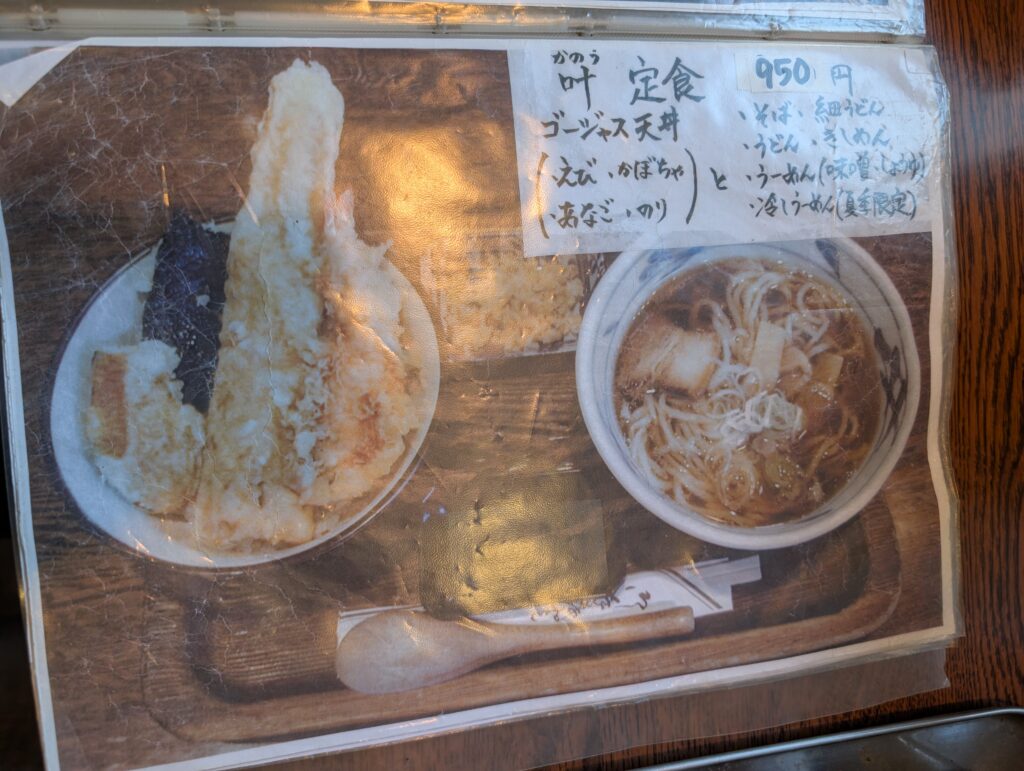 かのう
叶 定食 950円
ゴージャス天丼
(・えび ・かぼちゃ
・あなご ・のり) と
・そば ・細うどん
・うどん ・きしめん
・うーめん(味噌・しょうゆ)
・冷しうーめん(夏季限定)